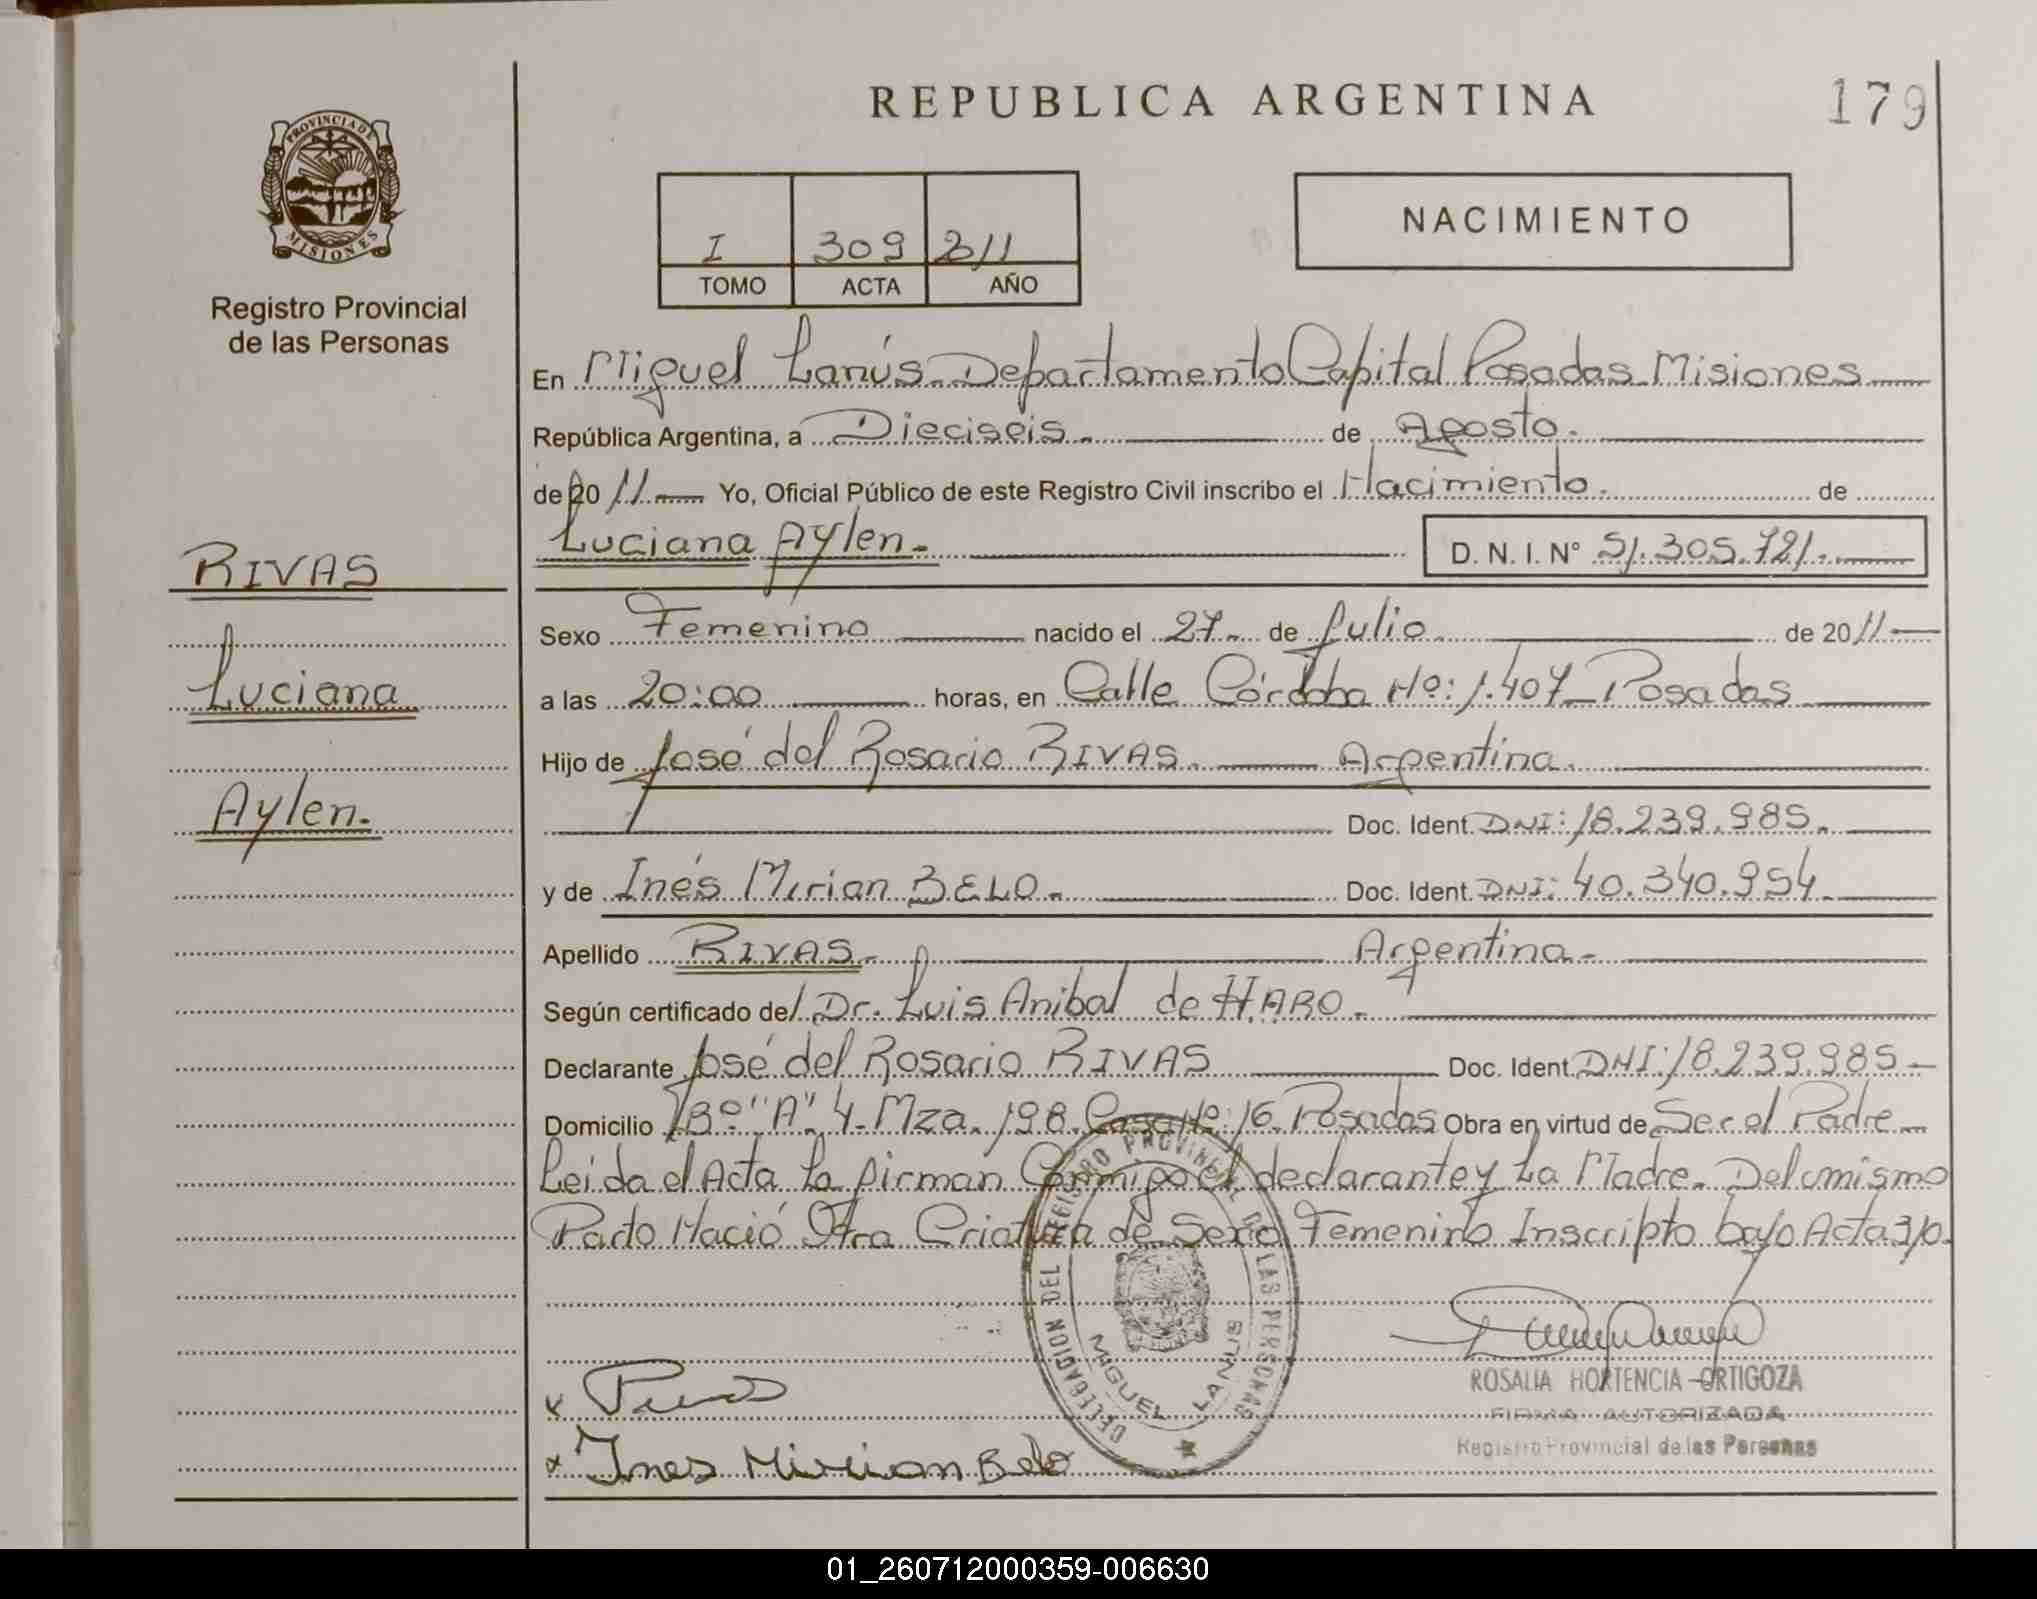 REPUBLICA ARGENTINA
179
PROVINCIA DE
MISIONES
Registro Provincial
de las Personas
NACIMIENTO
I 309 2011
TOMO ACTA AÑO
En Miguel Lanús. Departamento Capital Posadas Misiones
República Argentina, a Dieciseis. de Agosto.
de 2011 Yo, Oficial Público de este Registro Civil inscribo el Nacimiento. de
Luciana Aylen.- D. N. I. N° 51.305.721.-
RIVAS
Luciana
Aylen.
Sexo Femenino nacido el 27 de Julio de 2011
a las 20:00 horas, en Calle Córdoba Nº: 1.407 Posadas
Hijo de José del Rosario RIVAS. Argentina.
Doc. Ident. DNI: 18.239.985.
y de Inés Mirian BELO.- Doc. Ident. DNI: 40.340.954.
Apellido RIVAS.- Argentina.-
Según certificado del Dr. Luis Anibal de HARO.-
Declarante José del Rosario RIVAS Doc. Ident. DNI: 18.239.985
Domicilio Bº "A" 4. Mza. 198. Casa Nº: 16. Posadas Obra en virtud de Ser el Padre
Leida el Acta la firman Conmigo el declarante y La Madre. Del mismo
Parto Nació Otra Criatura de Sexo Femenino Inscripto bajo Acta 310.
DELEGACION DEL REGISTRO PROVINCIAL DE LAS PERSONAS
MIGUEL LANUS
ROSALIA HORTENCIA ORTIGOZA
FIRMA AUTORIZADA
Registro Provincial de las Personas
x
x Ines Mirian Belo
01_260712000359-006630